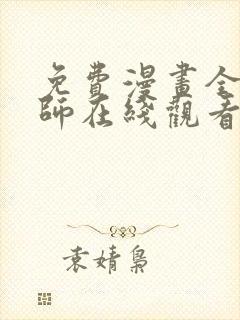 免費漫畫全
師在綫觀看
袁婧梟